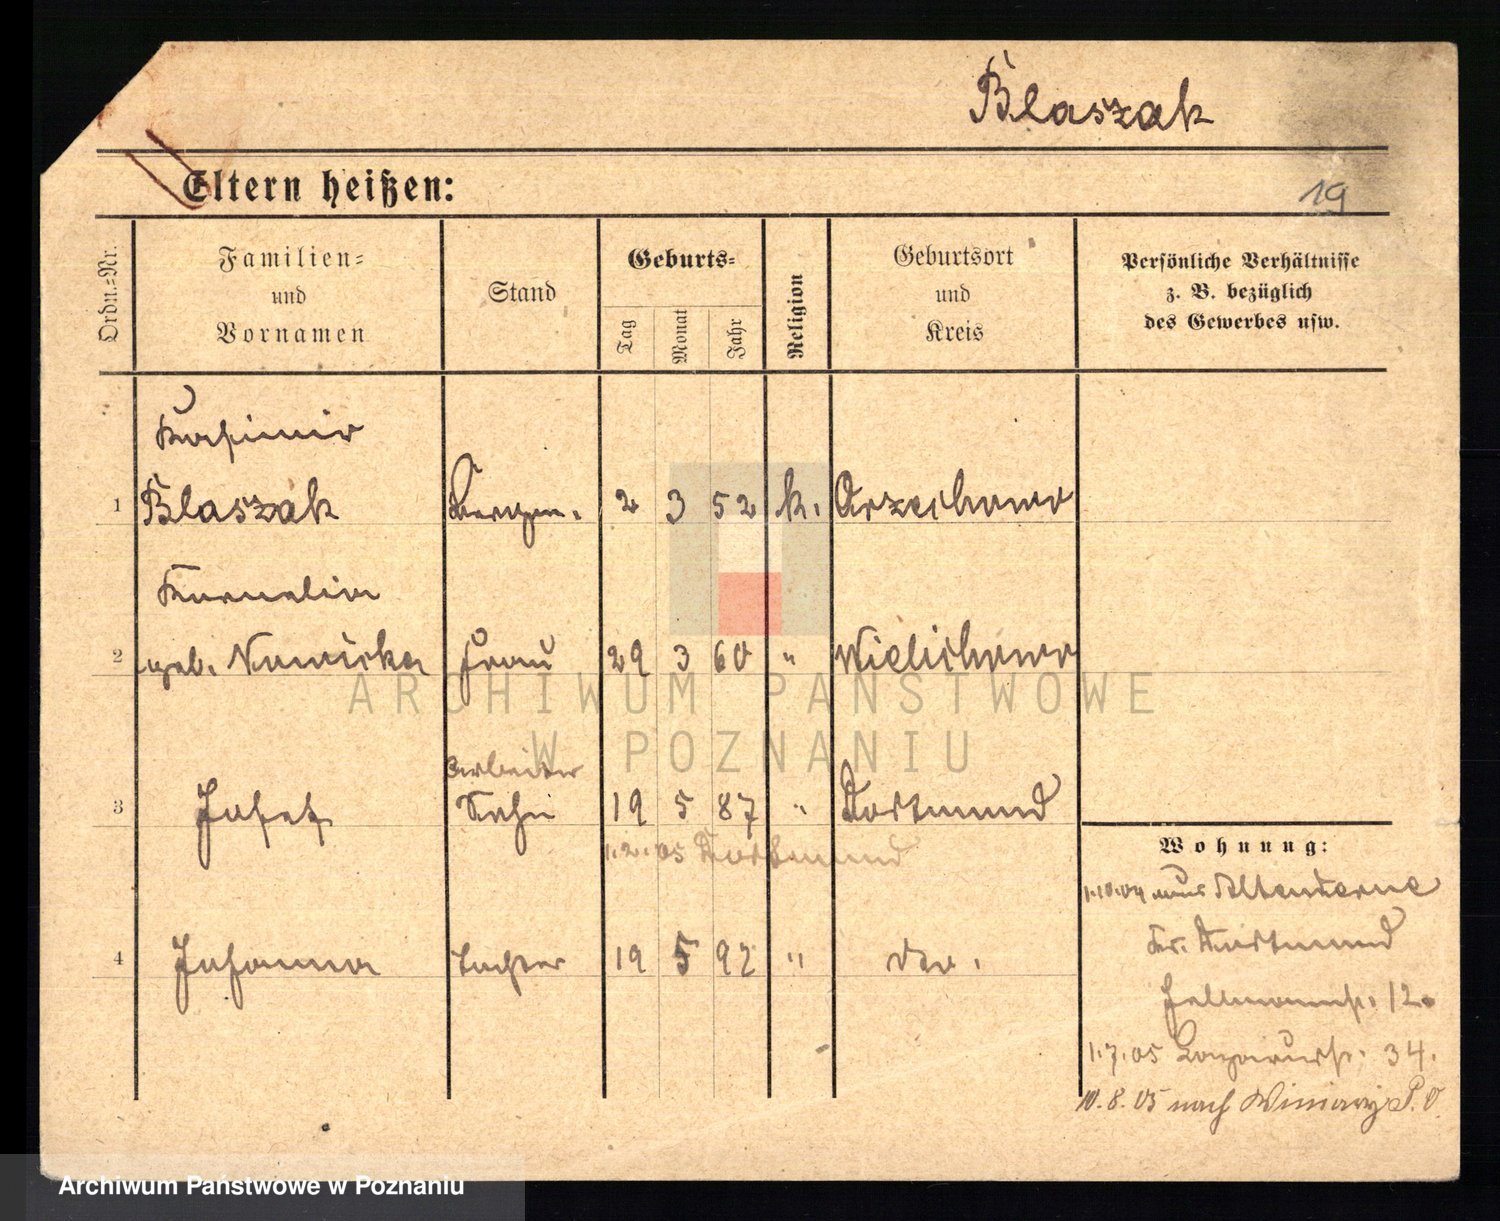 Blaszak
Eltern heißen:
19
Ordn.-Nr.
Familien-
und
Vornamen
Stand
Geburts-
Tag
Monat
Jahr
Religion
Geburtsort
und
Kreis
Persönliche Verhältnisse
z. B. bezüglich
des Gewerbes usw.
Kasimir
1 Blaszak 2 3 52 k. Orzechowo
Kornelia
2 geb. Nowicka Frau 29 3 60 " Wielichowo
Arbeiter
3 Josef Sohn 19 5 87 " Dortmund
1.2.05 Dortmund
4 Johanna Tochter 19 5 92 " do.
Wohnung:
1.10.04 aus Altenderne
Kr. Dortmund
12
1.7.05 34.
10.8.05 nach Winiary P. O
ARCHIWUM PAŃSTWOWE
W POZNANIU
Archiwum Państwowe w Poznaniu